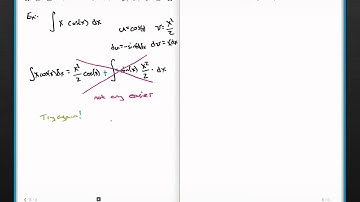 Ex: ∫ x cos(x) dx
u=cos(x) v= x²/2
du=-sin(x)dx dv=xdx
∫xcos(x)dx = x²/2 cos(x) + ∫ sin(x) x²/2 · dx
not any easier
Try again!